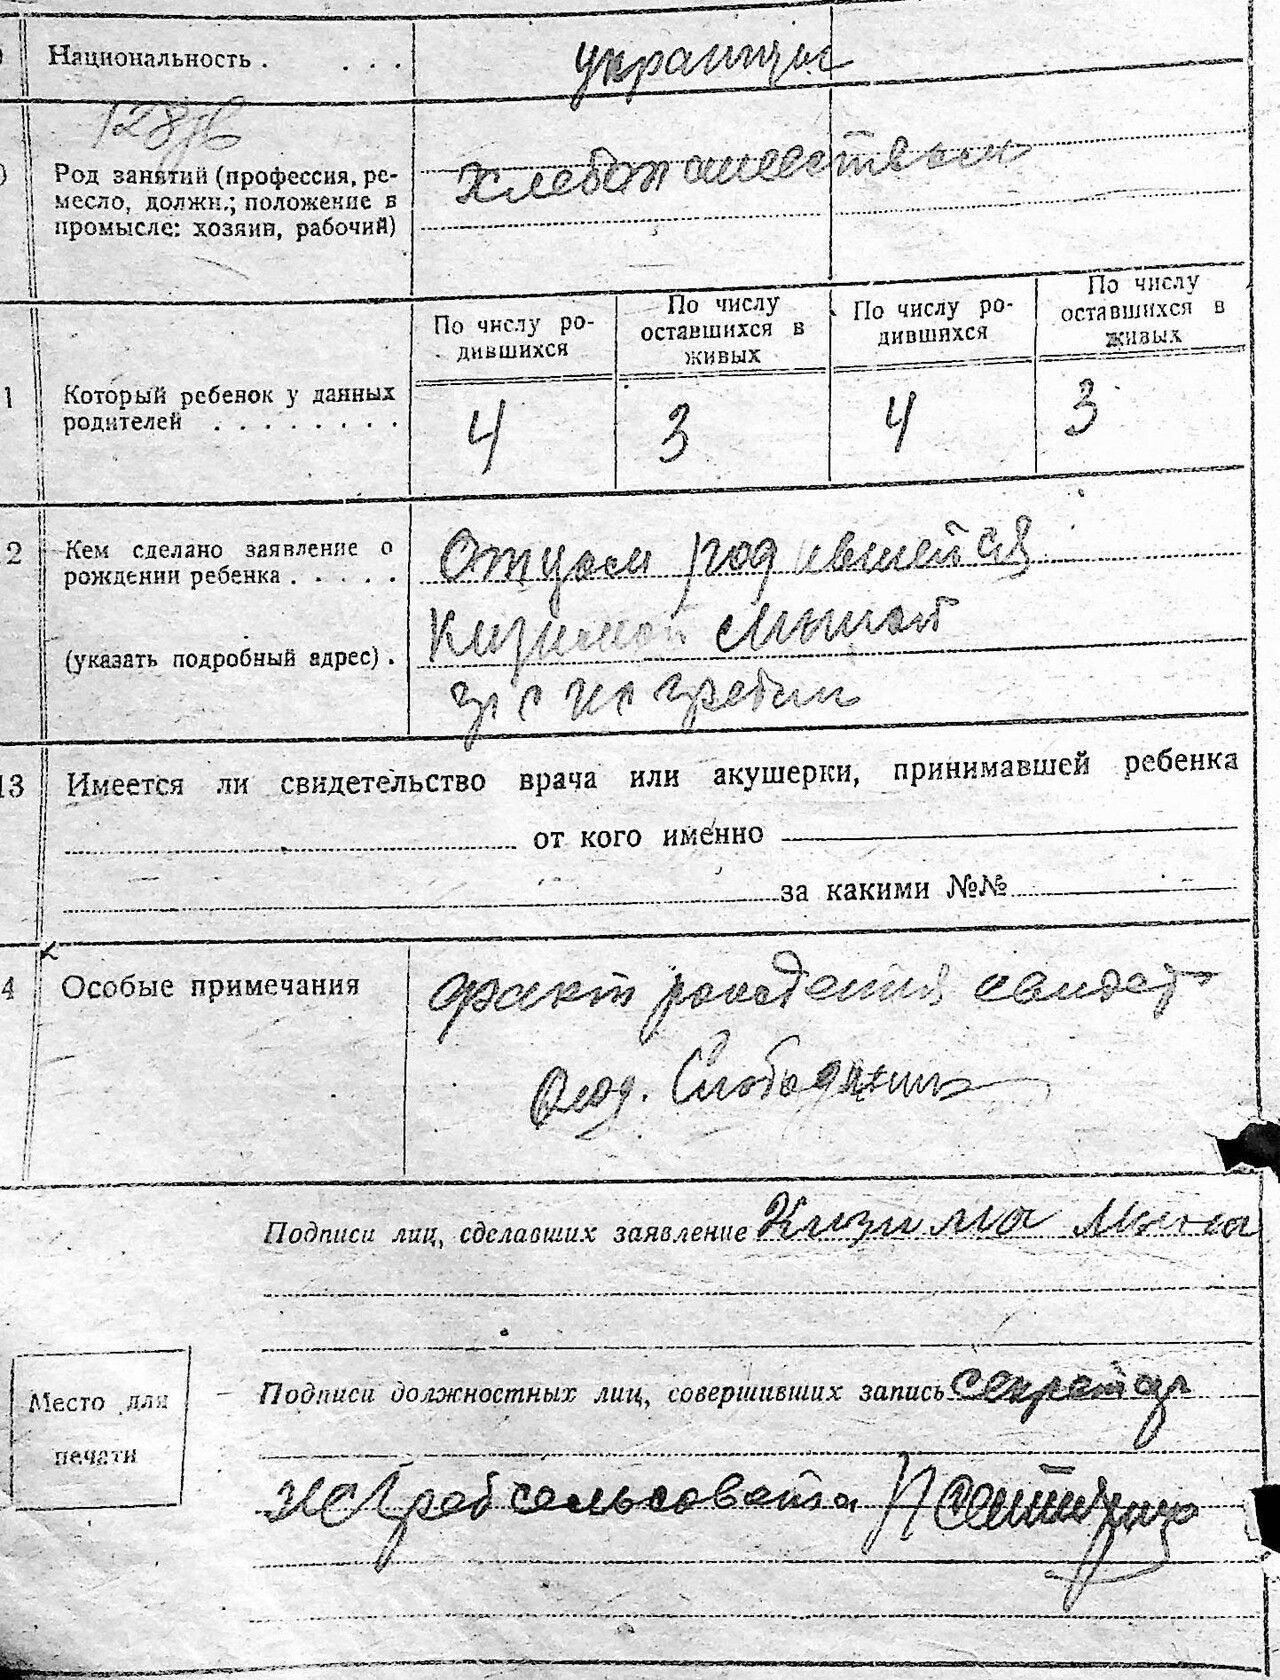 Национальность . . . . украинцы
Род занятий (профессия, ре-
месло, должн.; положение в
промысле: хозяин, рабочий)
хлебопашеством
По числу ро-
дившихся
По числу
оставшихся в
живых
По числу ро-
дившихся
По числу
оставшихся в
живых
1 Который ребенок у данных
родителей . . . . . . . .
4 3 4 3
2 Кем сделано заявление о
рождении ребенка . . . . .
(указать подробный адрес) .
Отцом родившейся
Кизимой Мыной
13 Имеется ли свидетельство врача или акушерки, принимавшей ребенка
от кого именно
за какими №№
4 Особые примечания
факт рождения свидет
Слободянин
Подписи лиц, сделавших заявление Кизима Мына
Место для
печати
Подписи должностных лиц, совершивших запись секретар
сельсовета